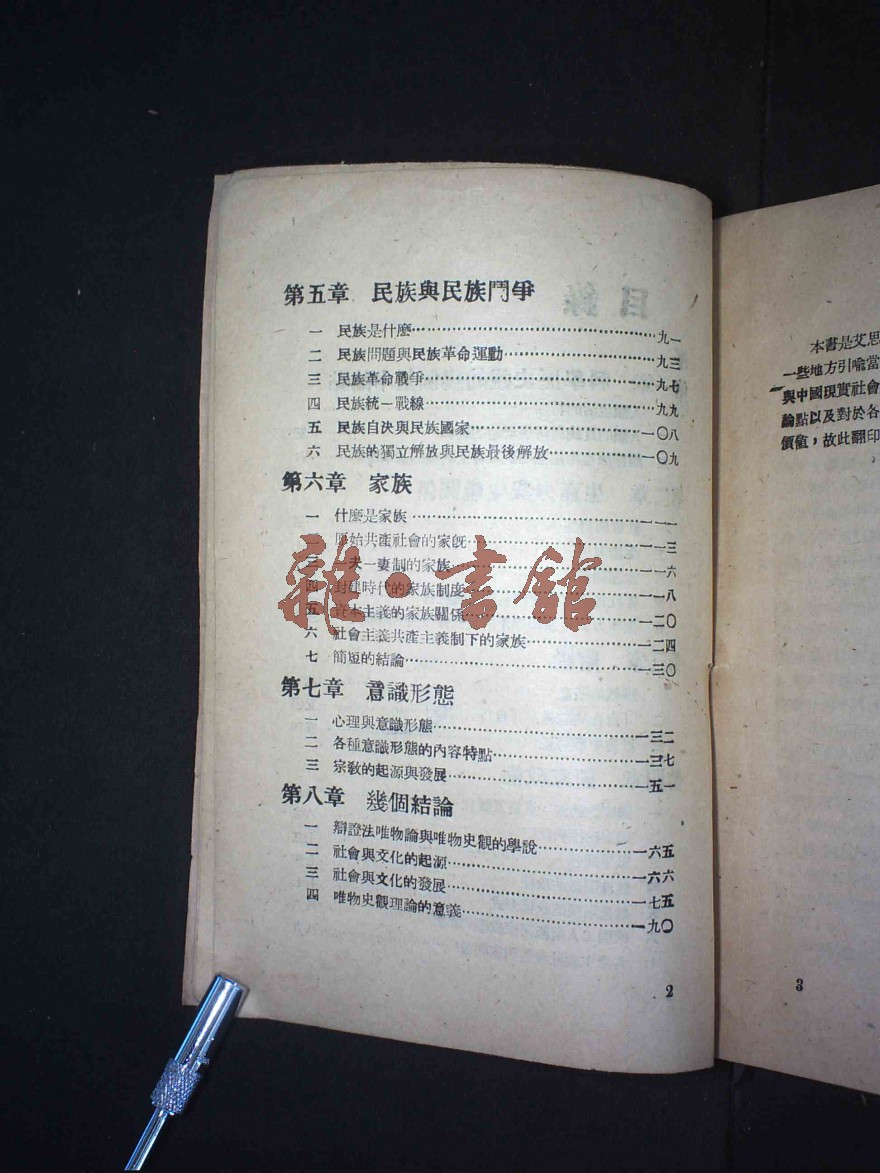 第五章 民族與民族鬥爭
一 民族是什麼……九一
二 民族問題與民族革命運動……九三
三 民族革命戰爭……九七
四 民族統一戰線……九九
五 民族自決與民族國家……一〇八
六 民族的獨立解放與民族最後解放……一〇九
第六章 家族
一 什麼是家族……一一一
二 原始共產社會的家族……一一三
三 一夫一妻制的家族……一一六
四 封建時代的家族制度……一一八
五 資本主義的家族關係……一二〇
六 社會主義共產主義制下的家族……一二四
七 簡短的結論……一三〇
第七章 意識形態
一 心理與意識形態……一三二
二 各種意識形態的內容特點……一三七
三 宗教的起源與發展……一五一
第八章 幾個結論
一 辯證法唯物論與唯物史觀的學說……一六五
二 社會與文化的起源……一六六
三 社會與文化的發展……一七五
四 唯物史觀理論的意義……一九〇
2
雜·書館
本書是艾思
一些地方引喻當
與中國現實社會
論點以及對於各
價值，故此翻印
3